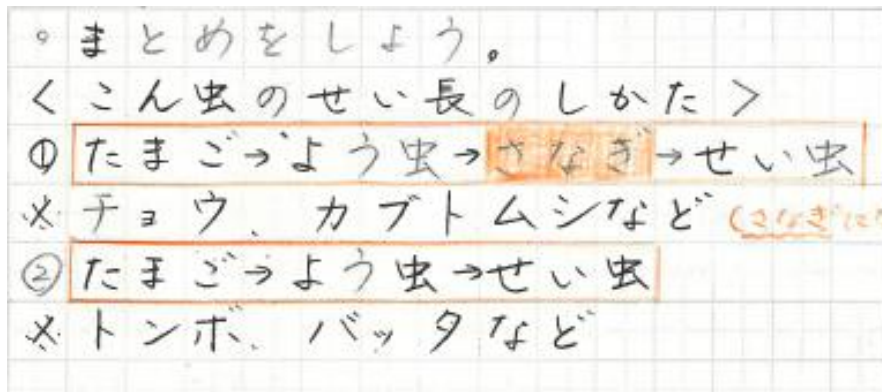 。まとめをしよう。
<こん虫のせい長のしかた>
① たまご→よう虫→さなぎ→せい虫
※チョウ、カブトムシなど(さなぎに
② たまご→よう虫→せい虫
※トンボ、バッタなど